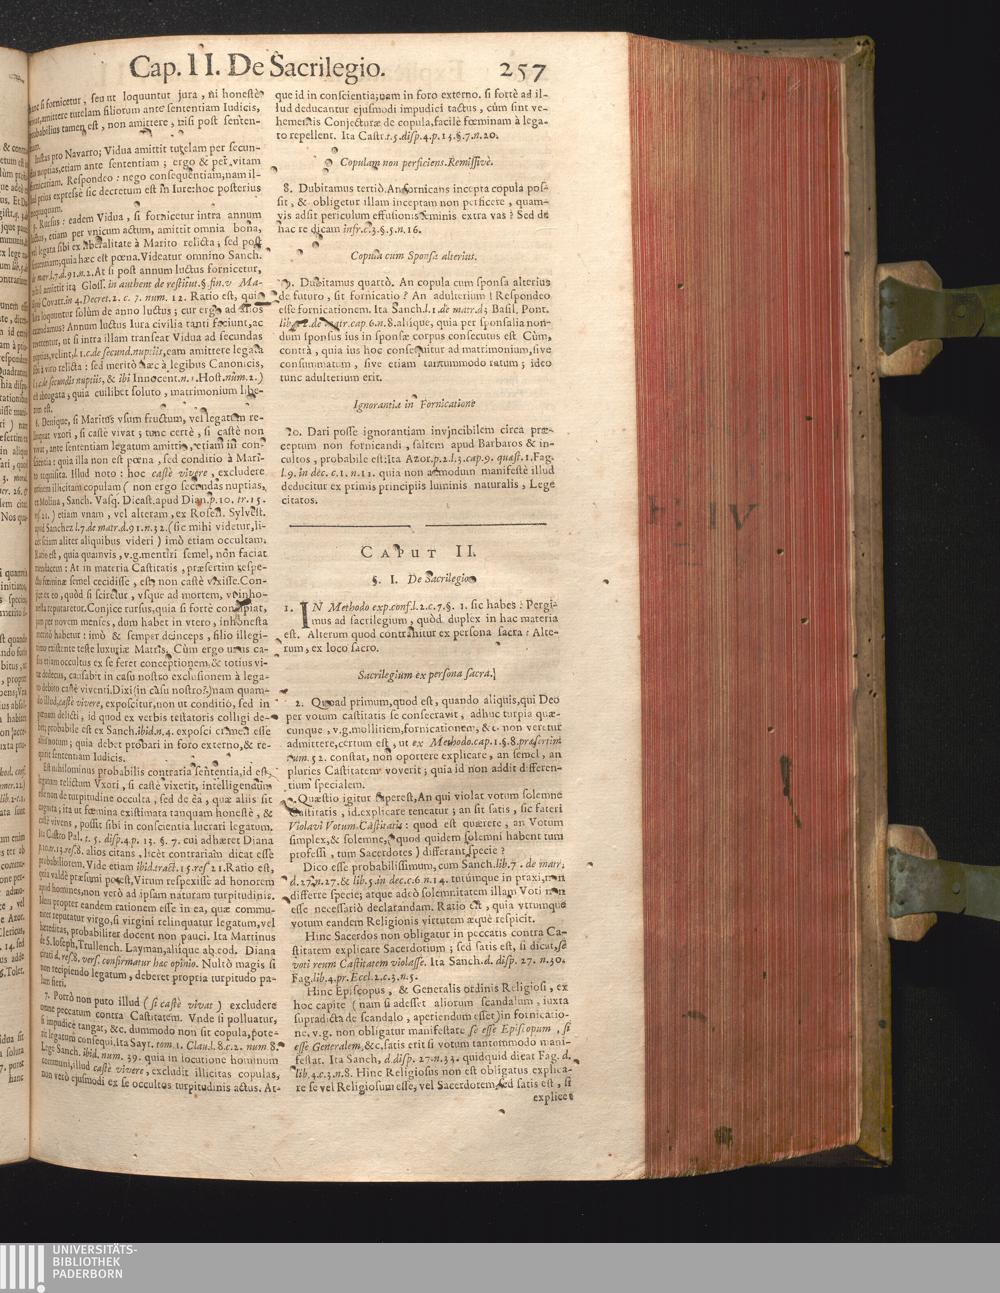 Cap. II. De Sacrilegio. 257
si fornicetur, seu ut loquuntur jura, ni honestè
amittere tutelam filiorum ante sententiam Iudicis,
probabilius tamen est, non amittere, nisi post senten-
Instas pro Navarro; Vidua amittit tutelam per secun-
nuptias, etiam ante sententiam; ergo & per vitam
Respondeo: nego consequentiam, nam il-
prius expressè sic decretum est in Iure: hoc posterius
nequaquam.
Rursus: eadem Vidua, si fornicetur intra annum
luctus, etiam per vnicum actum, amittit omnia bona,
vel legata sibi ex liberalitate à Marito relicta; sed post
quia hæc est pœna. Videatur omnino Sanch.
de matr.l.7.d.91.n.2. At si post annum luctus fornicetur,
amittit ita Gloss. in authent de restitut.§.fin.v Ma-
Covarr.in 4.Decret.2. c. 7. num. 12. Ratio est, quia
loquuntur solùm de anno luctus; cur ergo ad alios
Annum luctus Iura civilia tanti faciunt, ac
ut si intra illam transeat Vidua ad secundas
nuptias, velint, l.1.c.de secund.nuptiis, eam amittere legata
sibi à viro relicta: sed meritò hæc à legibus Canonicis,
c.de secundis nuptiis, & ibi Innocent.n.1.Host.num.2.)
est abrogata, quia cuilibet soluto, matrimonium libe-
rum est.
6. Denique, si Maritus vsum fructum, vel legatum re-
linquat vxori, si castè vivat; tunc certè, si castè non
vivat, ante sententiam legatum amittit, etiam in con-
scientia: quia illa non est pœna, sed conditio à Mari-
to requisita. Illud noto: hoc castè vivere, excludere
illicitam copulam (non ergo secundas nuptias,
ex Molina, Sanch. Vasq. Dicast. apud Dian.p.10. tr.15.
etiam vnam, vel alteram, ex Rosell. Sylvest.
apud Sanchez l.7.de matr.d.91.n.32. (sic mihi videtur, li-
cet sciam aliter aliquibus videri) imò etiam occultam.
Ratio est, quia quamvis, v.g. mentiri semel, non faciat
mendacem: At in materia Castitatis, præsertim respe-
ctu fœminæ semel cecidisse, est, non castè vixisse. Con-
ex eo, quòd si sciretur, vsque ad mortem, vt inho-
nesta reputaretur. Conjice rursus, quia si fortè concipiat,
per novem menses, dum habet in vtero, inhonesta
meritò habetur: imò & semper deinceps, filio illegi-
timo existente teste luxuriæ Matris. Cùm ergo vnus ca-
sus etiam occultus ex se feret conceptionem, & totius vi-
tæ dedecus, causabit in casu nostro exclusionem à lega-
to debito castè viventi. Dixi (in casu nostro?) nam quam-
do illud, castè vivere, exposcitur, non ut conditio, sed in
pœnam delicti, id quod ex verbis testatoris colligi de-
bet; probabile est ex Sanch.ibid.n.4. exposci crimen esse
notum; quia debet probari in foro externo, & re-
quirit sententiam Iudicis.
Est nihilominus probabilis contraria sententia, id est,
legatum relictum Vxori, si castè vixerit, intelligendum
esse non de turpitudine occulta, sed de ea, quæ aliis sit
cognita; ita ut fœmina existimata tanquam honestè, &
castè vivens, possit sibi in conscientia lucrari legatum.
Ita Castro Pal. t. 5. disp.4.p. 13. §. 7. cui adhæret Diana
alios citans, licèt contrariam dicat esse
probabiliorem. Vide etiam ibid.tract.15.res 21. Ratio est,
quia valdè præsumi potest, Virum respexisse ad honorem
apud homines, non verò ad ipsam naturam turpitudinis.
Imo propter eandem rationem esse in ea, quæ commu-
niter reputatur virgo, si virgini relinquatur legatum, vel
hæreditas, probabiliter docent non pauci. Ita Martinus
de S. Ioseph, Trullench. Layman, aliique ab eod. Diana
citati d. res8. vers. confirmatur hac opinio. Nultò magis si
non recipiendo legatum, deberet propria turpitudo pa-
lam fieri.
7. Porrò non puto illud (si castè vivat) excludere
omne peccatum contra Castitatem. Vnde si polluatur,
si impudicè tangat, &c. dummodo non sit copula, pote-
rit legatum consequi. Ita Sayr. tom. 1. Clau.l.8.c.2. num 8.
Lege Sanch. ibid. num. 39. quia in locutione hominum
communi, illud castè vivere, excludit illicitas copulas,
non verò ejusmodi ex se occultos turpitudinis actus. At-
que id in conscientia; nam in foro externo. si fortè ad il-
lud deducantur ejusmodi impudici tactus, cùm sint ve-
hementis Conjecturæ de copula, facilè fœminam à lega-
to repellent. Ita Castr.t.5.disp.4.p.13.§.7.n.20.
Copulam non perficiens. Remissivè.
8. Dubitamus tertiò. An fornicans incepta copula pos-
sit, & obligetur illam inceptam non perficere, quam-
vis adsit periculum effusionis seminis extra vas? Sed de
hac re dicam infr.c.3.§.5.n.16.
Copula cum Sponsa alterius.
9. Dubitamus quartò. An copula cum sponsa alterius
de futuro, sit fornicatio? An adulterium? Respondeo
esse fornicationem. Ita Sanch.l.1.de matr.d; Basil. Pont.
de matr.cap.6.n.8. aliique, quia per sponsalia non-
dum sponsus ius in sponsæ corpus consecutus est Cùm,
contrà, quia ius hoc consequitur ad matrimonium, sive
consummatum, sive etiam tantummodo ratum; ideo
tunc adulterium erit.
Ignorantia in Fornicatione
10. Dari posse ignorantiam invincibilem circa præ-
ceptum non fornicandi, saltem apud Barbaros & in-
cultos, probabile est: Ita Azor.p.2.l.3.cap.9. quæst.1. Fag.
l.9. in dec. c.1. n.12. quia non admodum manifestè illud
deducitur ex primis principiis luminis naturalis, Lege
citatos.
CAPUT II.
§. I. De Sacrilegio
1. IN Methodo exp.conf.l.2.c.7.§. 1. sic habes: Pergi-
mus ad sacrilegium, quòd duplex in hac materia
est. Alterum quod contrahitur ex persona sacra: Alte-
rum, ex loco sacro.
Sacrilegium ex persona sacra.
2. Quoad primum, quod est, quando aliquis, qui Deo
per votum castitatis se consecravit, adhuc turpia quæ-
cunque, v.g. mollitiem, fornicationem, &c. non veretur
admittere, certum est, ut ex Methodo.cap.1.§.8. præsertim
num.52. constat, non oportere explicare, an semel, an
pluries Castitatem voverit; quia id non addit differen-
tium specialem.
Quæstio igitur superest, An qui violat votum solemne
Castitatis, id explicare teneatur; an sit satis, sic fateri
Violavi Votum Castitatis: quod est quærere, an Votum
simplex, & solemne, (quod quidem solemni habent tum
professi, tum Sacerdotes) differant specie?
Dico esse probabilissimum, cum Sanch.lib.7. de matr.
d.27.n.27. & lib.5.in dec.c.6 n.14. tutumque in praxi, non
differre specie; atque adeò solemnitatem illam Voti non
esse necessariò declarandam. Ratio est, quia vtrumque
votum eandem Religionis virtutem æquè respicit.
Hinc Sacerdos non obligatur in peccatis contra Ca-
stitatem explicare Sacerdotium; sed satis est, si dicat, se
voti reum Castitatem violasse. Ita Sanch.d. disp. 27. n.30.
Fag.lib.4.pr.Eccl.2.c.3.n.5.
Hinc Episcopus, & Generalis ordinis Religiosi, ex
hoc capite (nam si adesset aliorum scandalum, iuxta
supradicta de scandalo, aperiendum esset) in fornicatio-
ne, v.g. non obligatur manifestare se esse Episcopum, si
esse Generalem, &c. satis erit si votum tantommodo mani-
festat. Ita Sanch, d.disp.27.n.33. quidquid dicat Fag. d.
lib.4.c.3.n.8. Hinc Religiosus non est obligatus explica-
re se vel Religiosum esse, vel Sacerdotem, sed satis est, si
explicet
UNIVERSITÄTS-
BIBLIOTHEK
PADERBORN